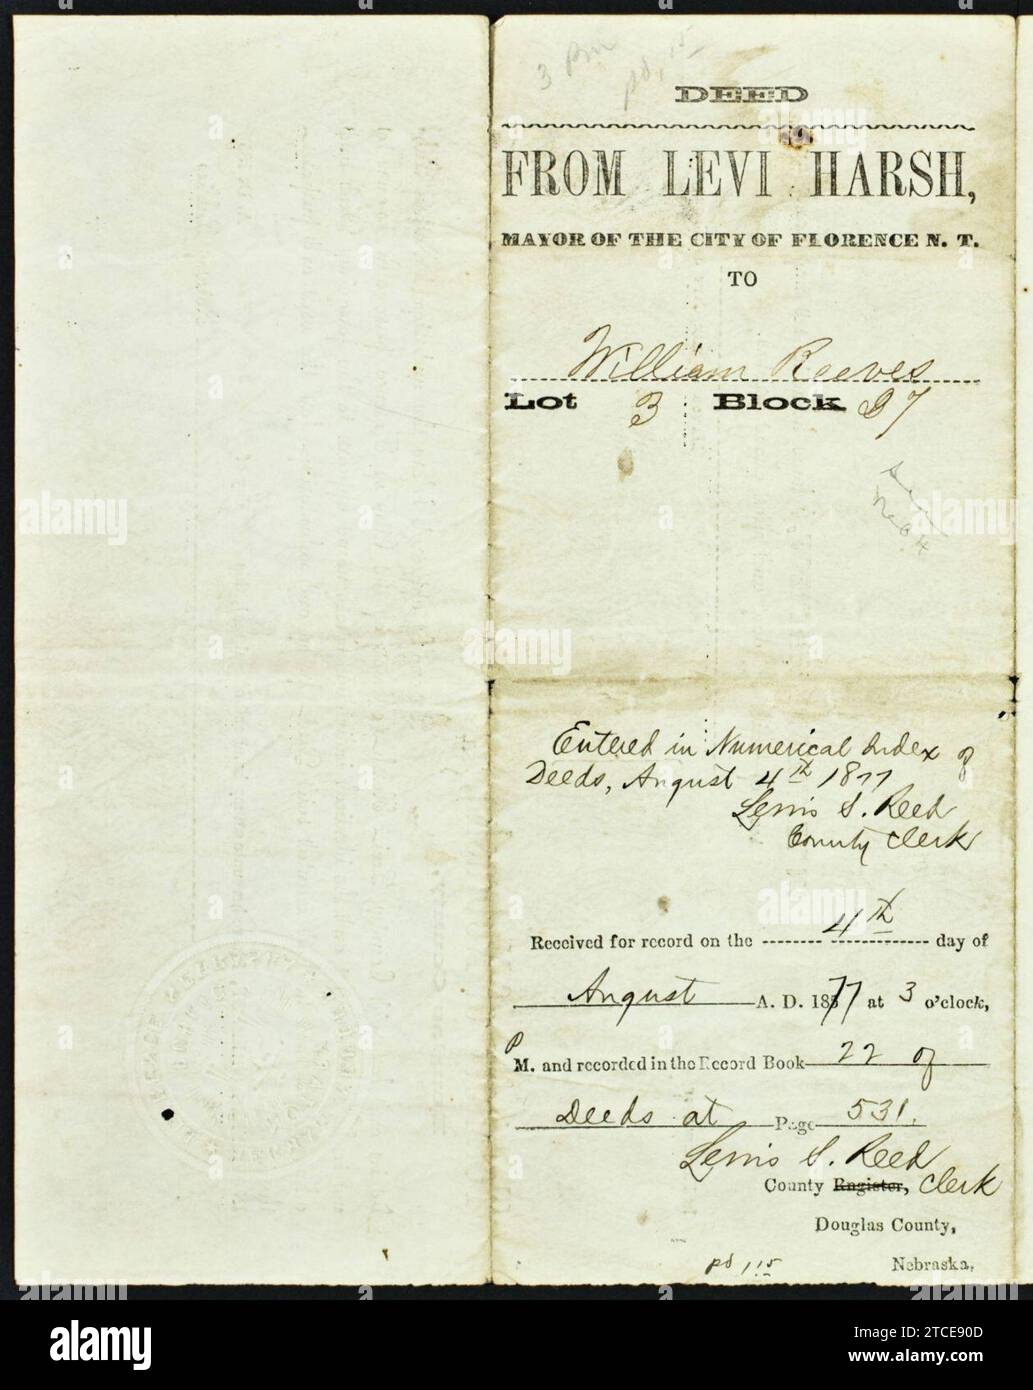 3 pm
pd, 15
DEED
FROM LEVI HARSH,
MAYOR OF THE CITY OF FLORENCE N. T.
TO
William Reeves
Lot 3 Block 97
Entered in Numerical Index of
Deeds, August 4th 1877
Lewis S. Reed
County Clerk
Received for record on the 4th day of
August A. D. 1877 at 3 o'clock,
P M. and recorded in the Record Book 22 of
Deeds at Page 531.
Lewis S. Reed
County Register, Clerk
Douglas County,
Nebraska,
pd 1,15
alamy
Image ID: 2TCE90D
www.alamy.com